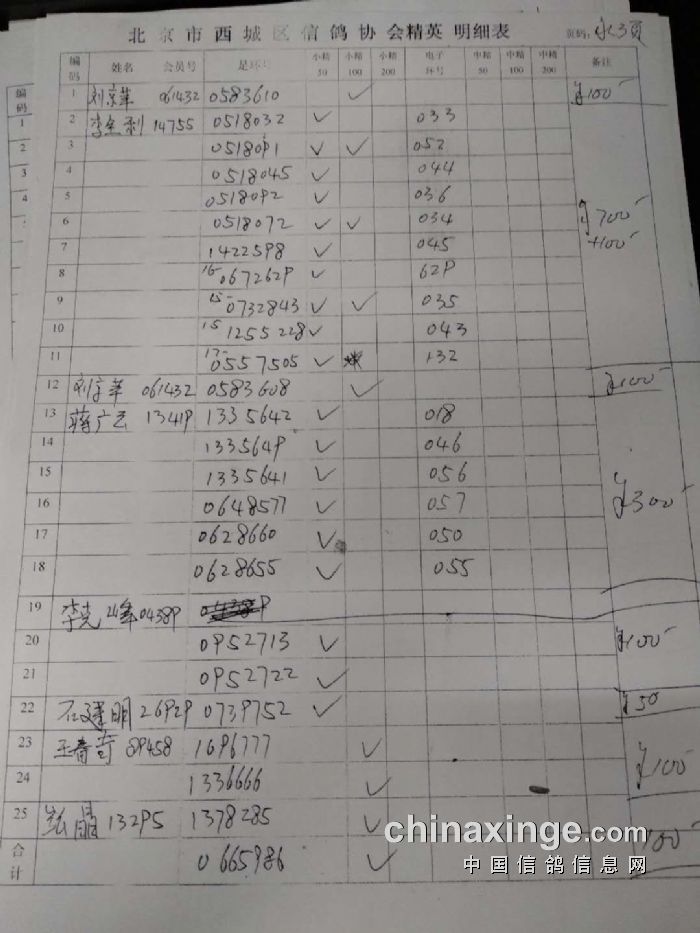 北京市西城区信鸽协会精英明细表 页码:
编码 姓名 会员号 足环号 小精50 小精100 小精200 电子环号 中精50 中精100 中精200 备注
1 刘京苹 061432 0583610 ✓ ¥100
2 14755 0518032 ✓ 033
3 0518091 ✓ ✓ 052
4 0518045 ✓ 044
5 0518092 ✓ 036
6 0518072 ✓ ✓ 034 ¥700
7 1422598 ✓ 045 +100
8 16-0672629 ✓ 629
9 15-0732843 ✓ ✓ 035
10 15 1255228 ✓ 043
11 0557505 ✓ 132
12 刘京苹 061432 0583608 ✓ ¥100
13 蒋广 13419 1335642 ✓ 018
14 1335649 ✓ 046
15 1335641 ✓ 056
16 0648577 ✓ 057 ¥300
17 0628660 ✓ 050
18 0628655 ✓ 055
19 李克峰 04389
20 0952713 ✓ ¥100
21 0952722 ✓
22 石建明 26929 0739752 ✓ ¥50
23 王春 89458 1696777 ✓
24 1336666 ✓ ¥100
25 13295 1378285 ✓
合计 0665986 ✓ 100
chinaxinge.com
中国信鸽信息网